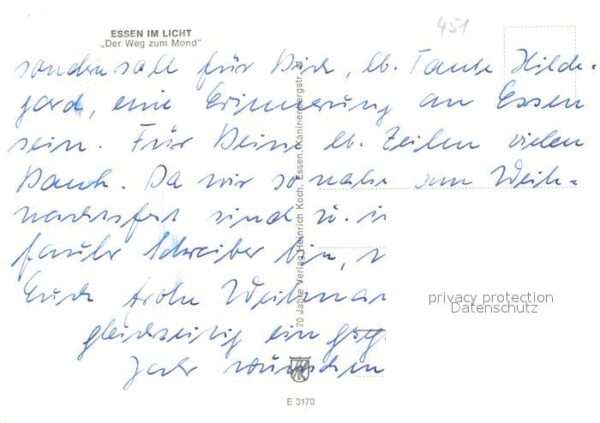 451
ESSEN IM LICHT
„Der Weg zum Mond"
sondern soll für Dich, lb. Tante Hilde-
gard, eine Erinnerung an Essen
sein. Für Deine lb. Zeilen vielen
Dank. Da wir so nahe am Weih-
nachtsfest sind u. i
fauler Schreiber bin,
Euch frohe Weihna
gleichzeitig ein
Jahr wünschen
70 Jahre Verlag Heinrich Koch, Essen, Kaninenbergstr.
privacy protection
Datenschutz
E 3170